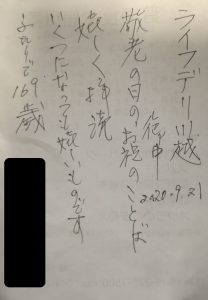 ライフデリ川越
御中
2020.9.21
敬老の日のお祝のことば
嬉しく拝読
いくつになっても嬉しいものです
ふたりで169歳